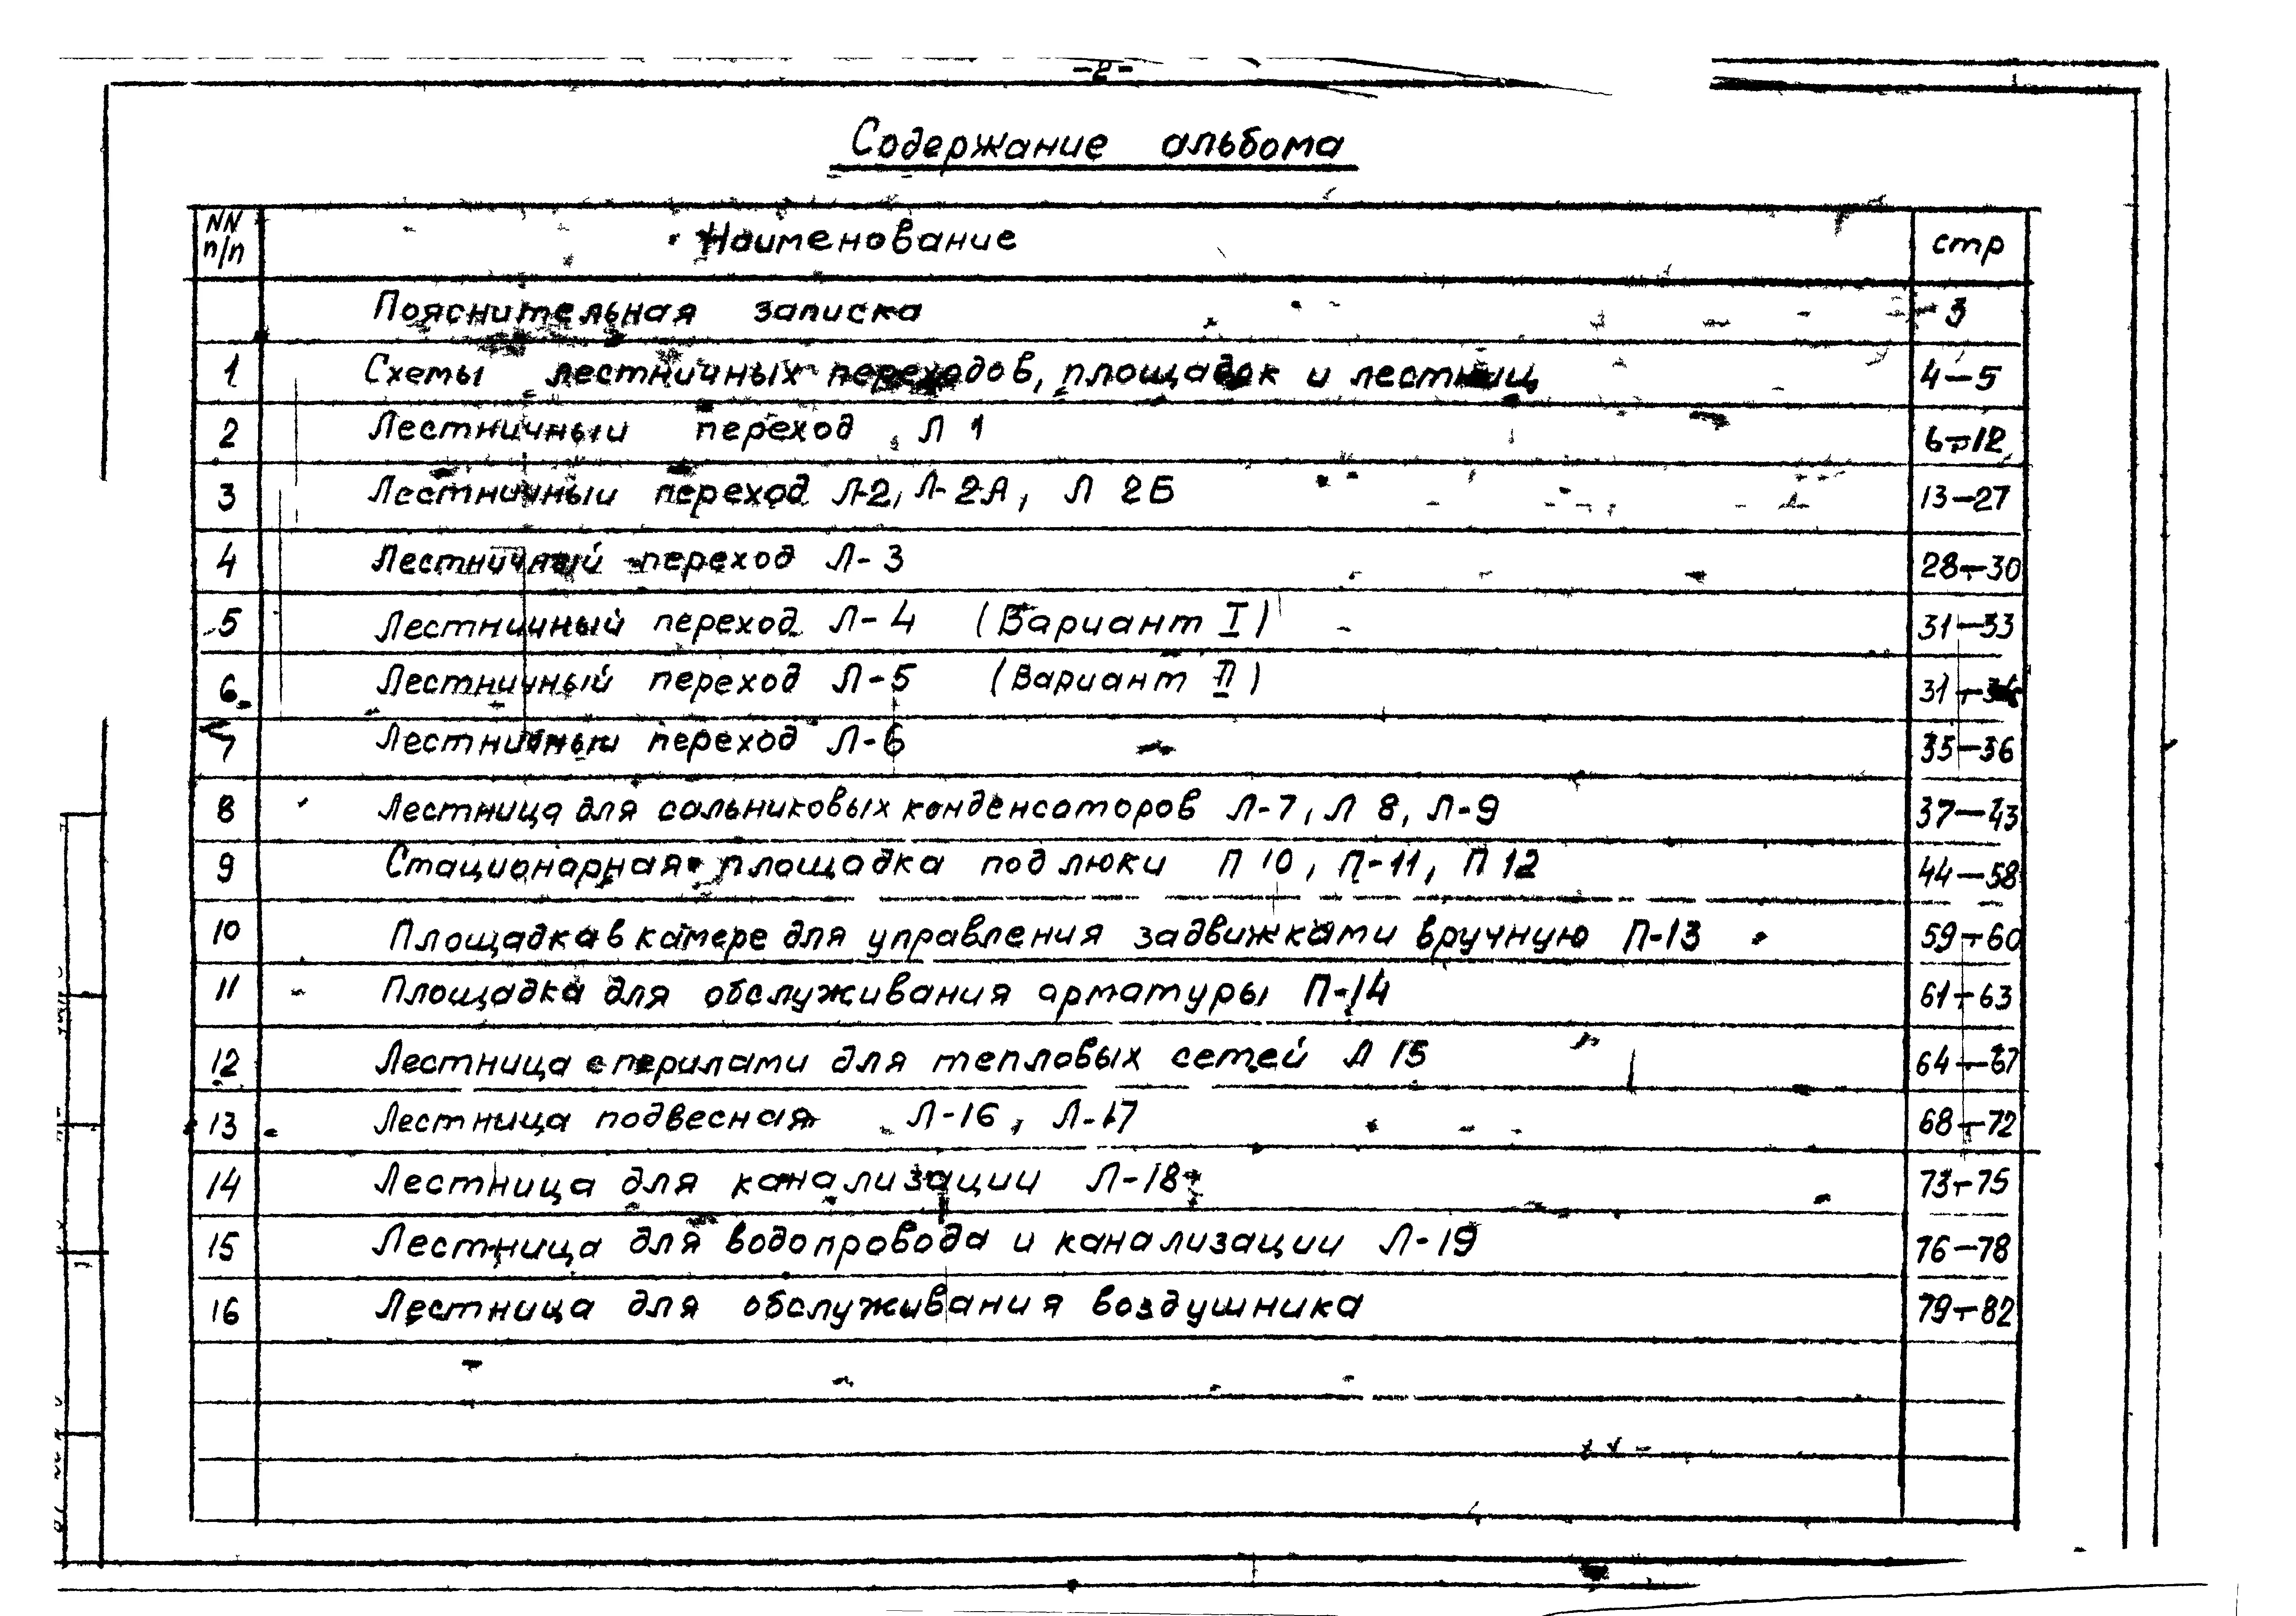 -2-
Содержание альбома
NN п/п Наименование стр
Пояснительная записка 3
1 Схемы лестничных переходов, площадок и лестниц 4-5
2 Лестничный переход Л 1 6-12
3 Лестничный переход Л-2, Л-2А, Л 2Б 13-27
4 Лестничный переход Л-3 28-30
5 Лестничный переход Л-4 (Вариант I) 31-33
6 Лестничный переход Л-5 (Вариант II) 31-
7 Лестничный переход Л-6 35-36
8 Лестница для сальниковых конденсаторов Л-7, Л 8, Л-9 37-43
9 Стационарная площадка под люки П 10, П-11, П 12 44-58
10 Площадка в камере для управления задвижками вручную П-13 59-60
11 Площадка для обслуживания арматуры П-14 61-63
12 Лестница с перилами для тепловых сетей Л 15 64-67
13 Лестница подвесная Л-16, Л-17 68-72
14 Лестница для канализации Л-18 73-75
15 Лестница для водопровода и канализации Л-19 76-78
16 Лестница для обслуживания воздушника 79-82